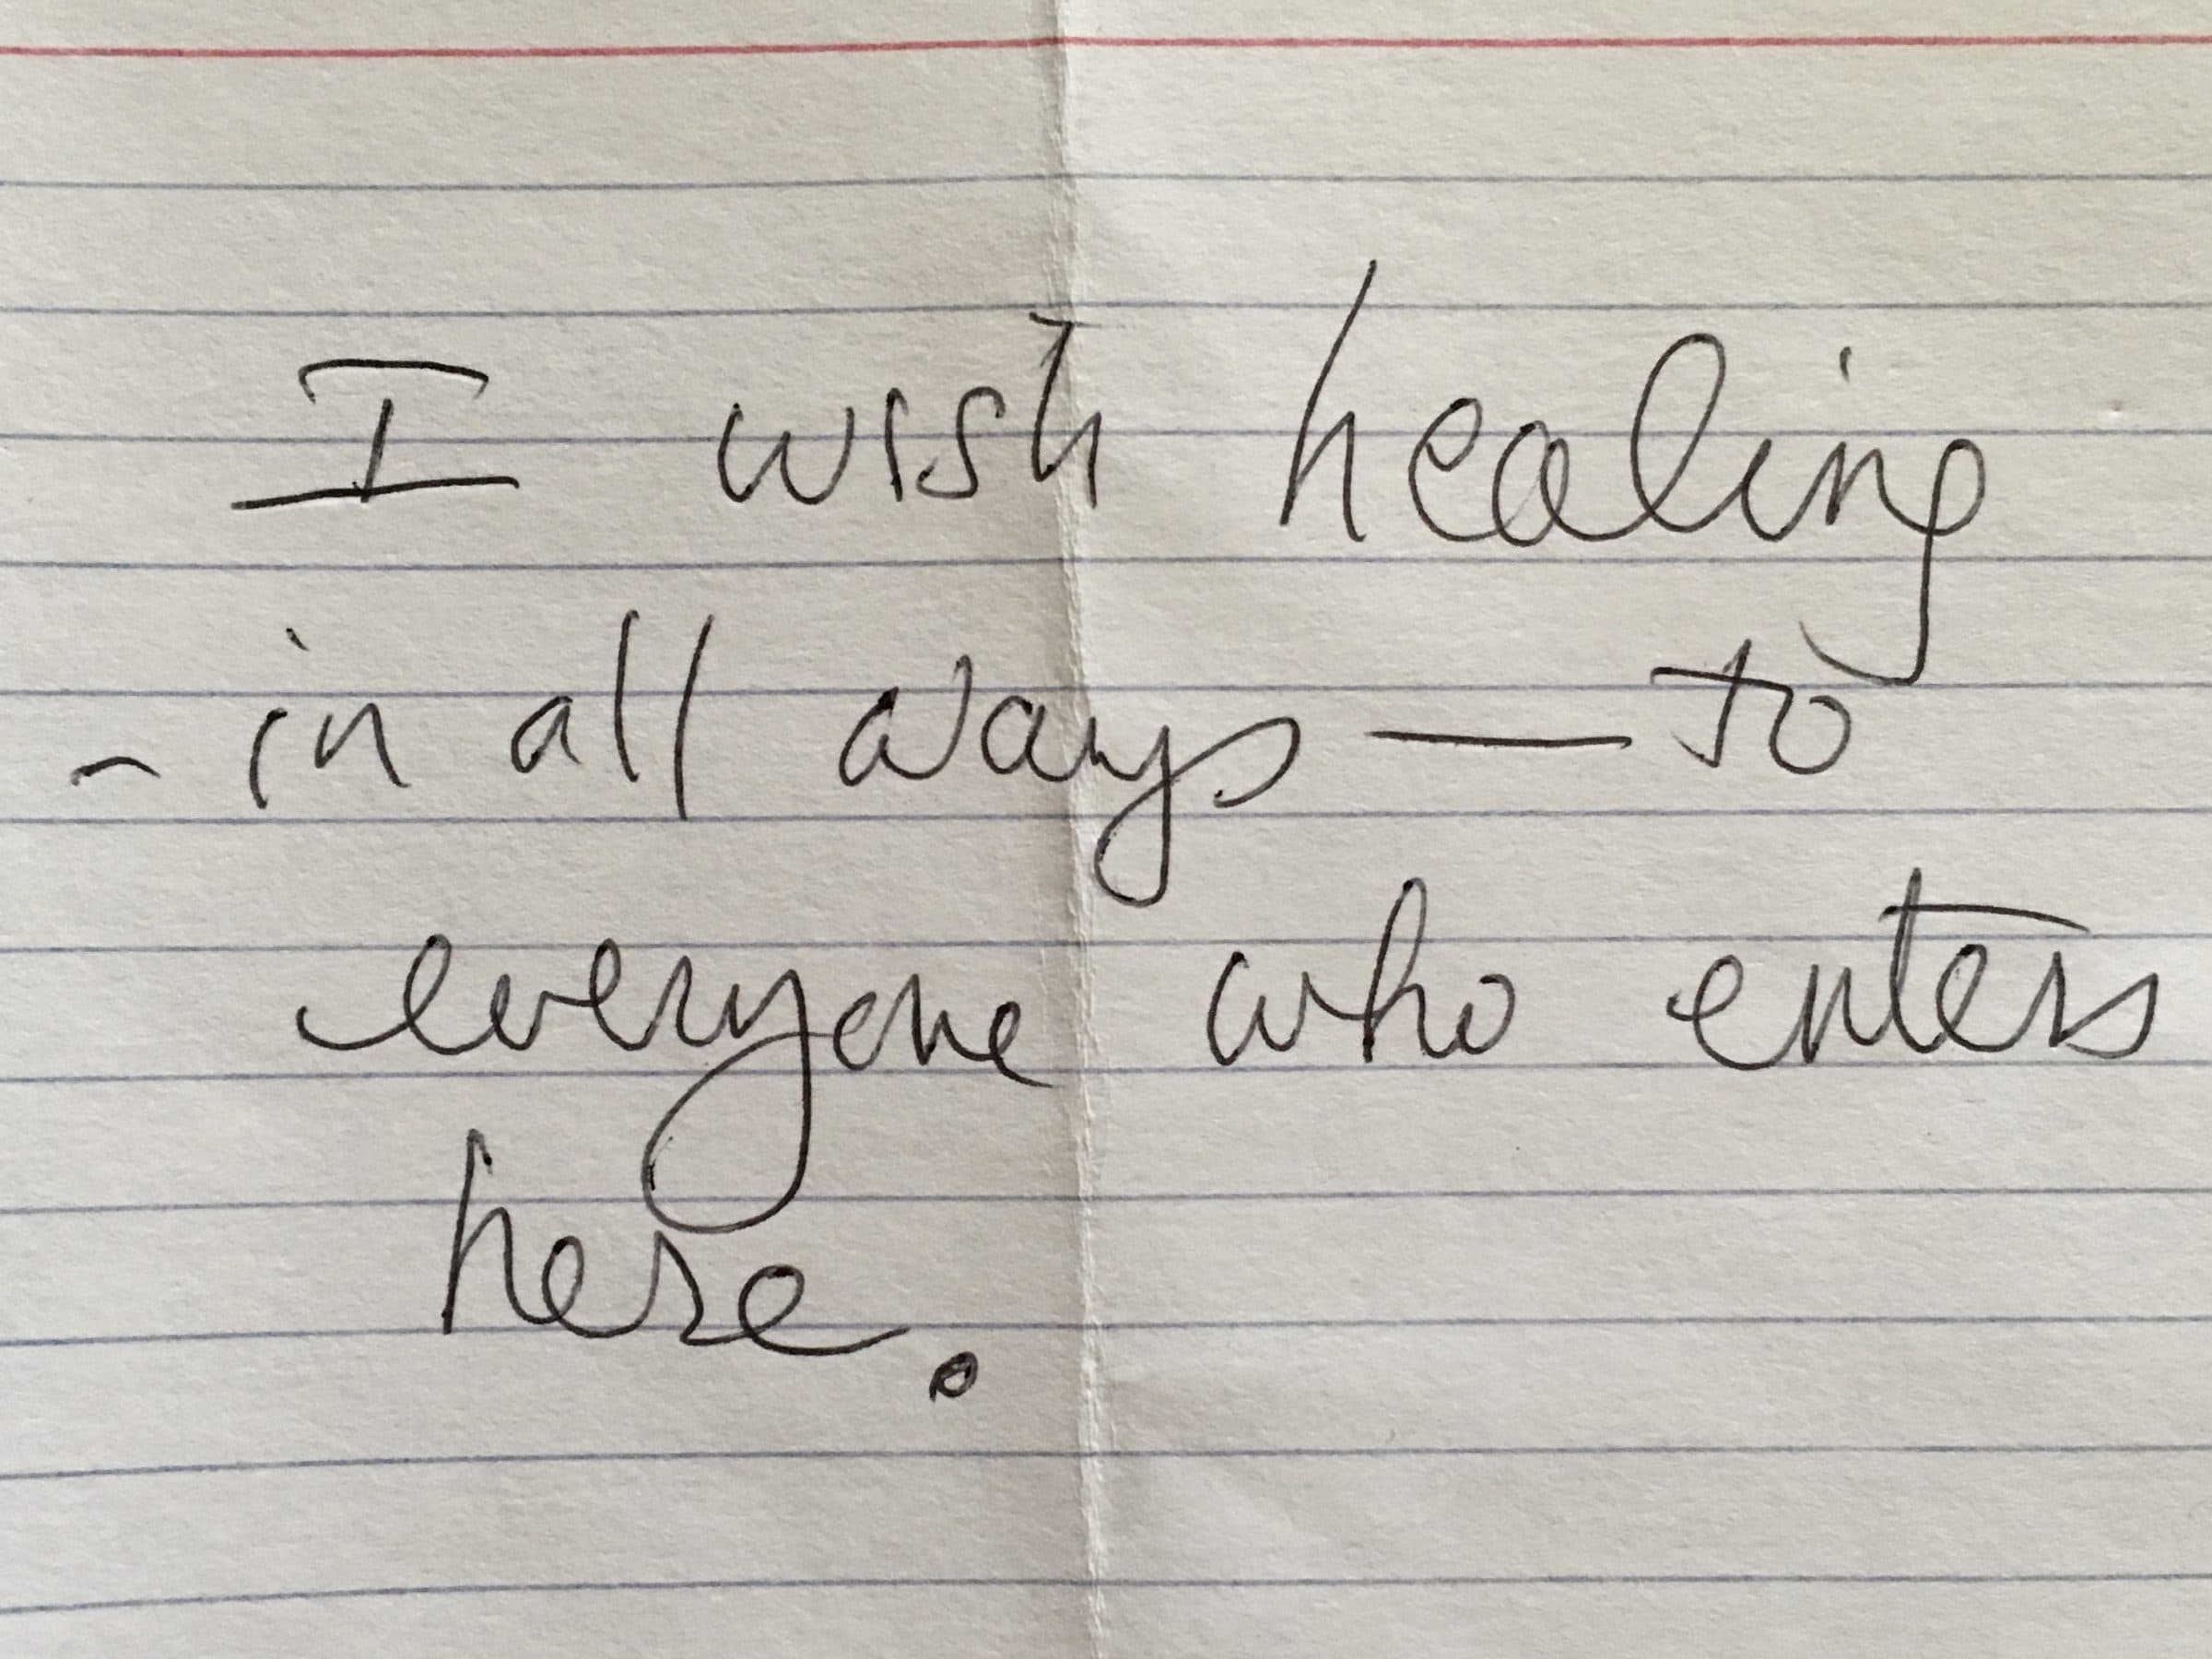 I wish healing
- in all ways — to
everyone who enters
here.